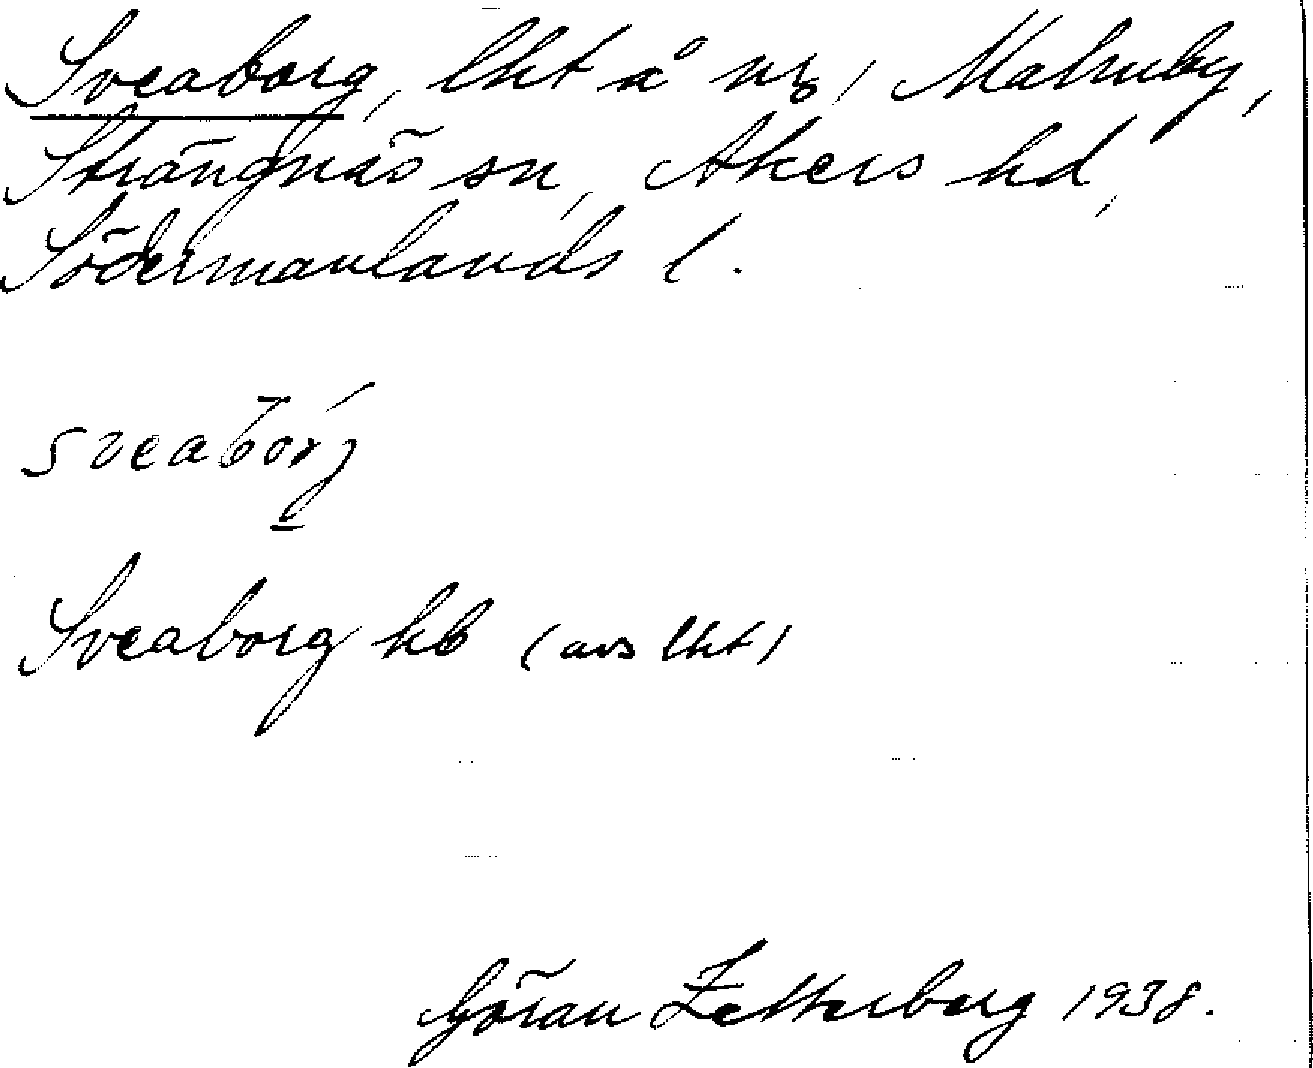 Sveaborg, lht å nr 1 Malmby,
Strängnäs sn, Akers hd,
Södermanlands l.
sveabo̅rǵ
Sveaborg hb (avs lht)
Göran Zetterberg 1938.